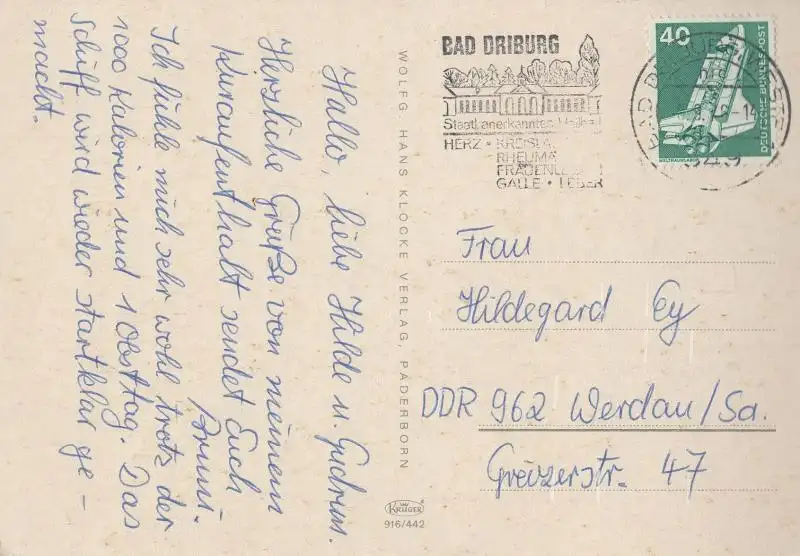 Hallo, liebe Hilde u. Gudrun.
Herzliche Grüße von meinem
Kuraufenthalt sendet Euch
Bruni.
Ich fühle mich sehr wohl trotz der
1000 Kalorien und 1 Obsttag. Das
Schiff wird wieder startklar ge-
macht.
WOLFG. HANS KLOCKE VERLAG, PADERBORN
KRÜGER
916/442
BAD DRIBURG
Staatl. anerkanntes
HERZ • KREISLA
RHEUMA
FRAUENLE
GALLE • LEBER
40
DEUTSCHE BUNDESPOST
WELTRAUMLABOR
BAD
-14
349
Frau
Hildegard Ey
DDR 962 Werdau/Sa.
Greizerstr. 47